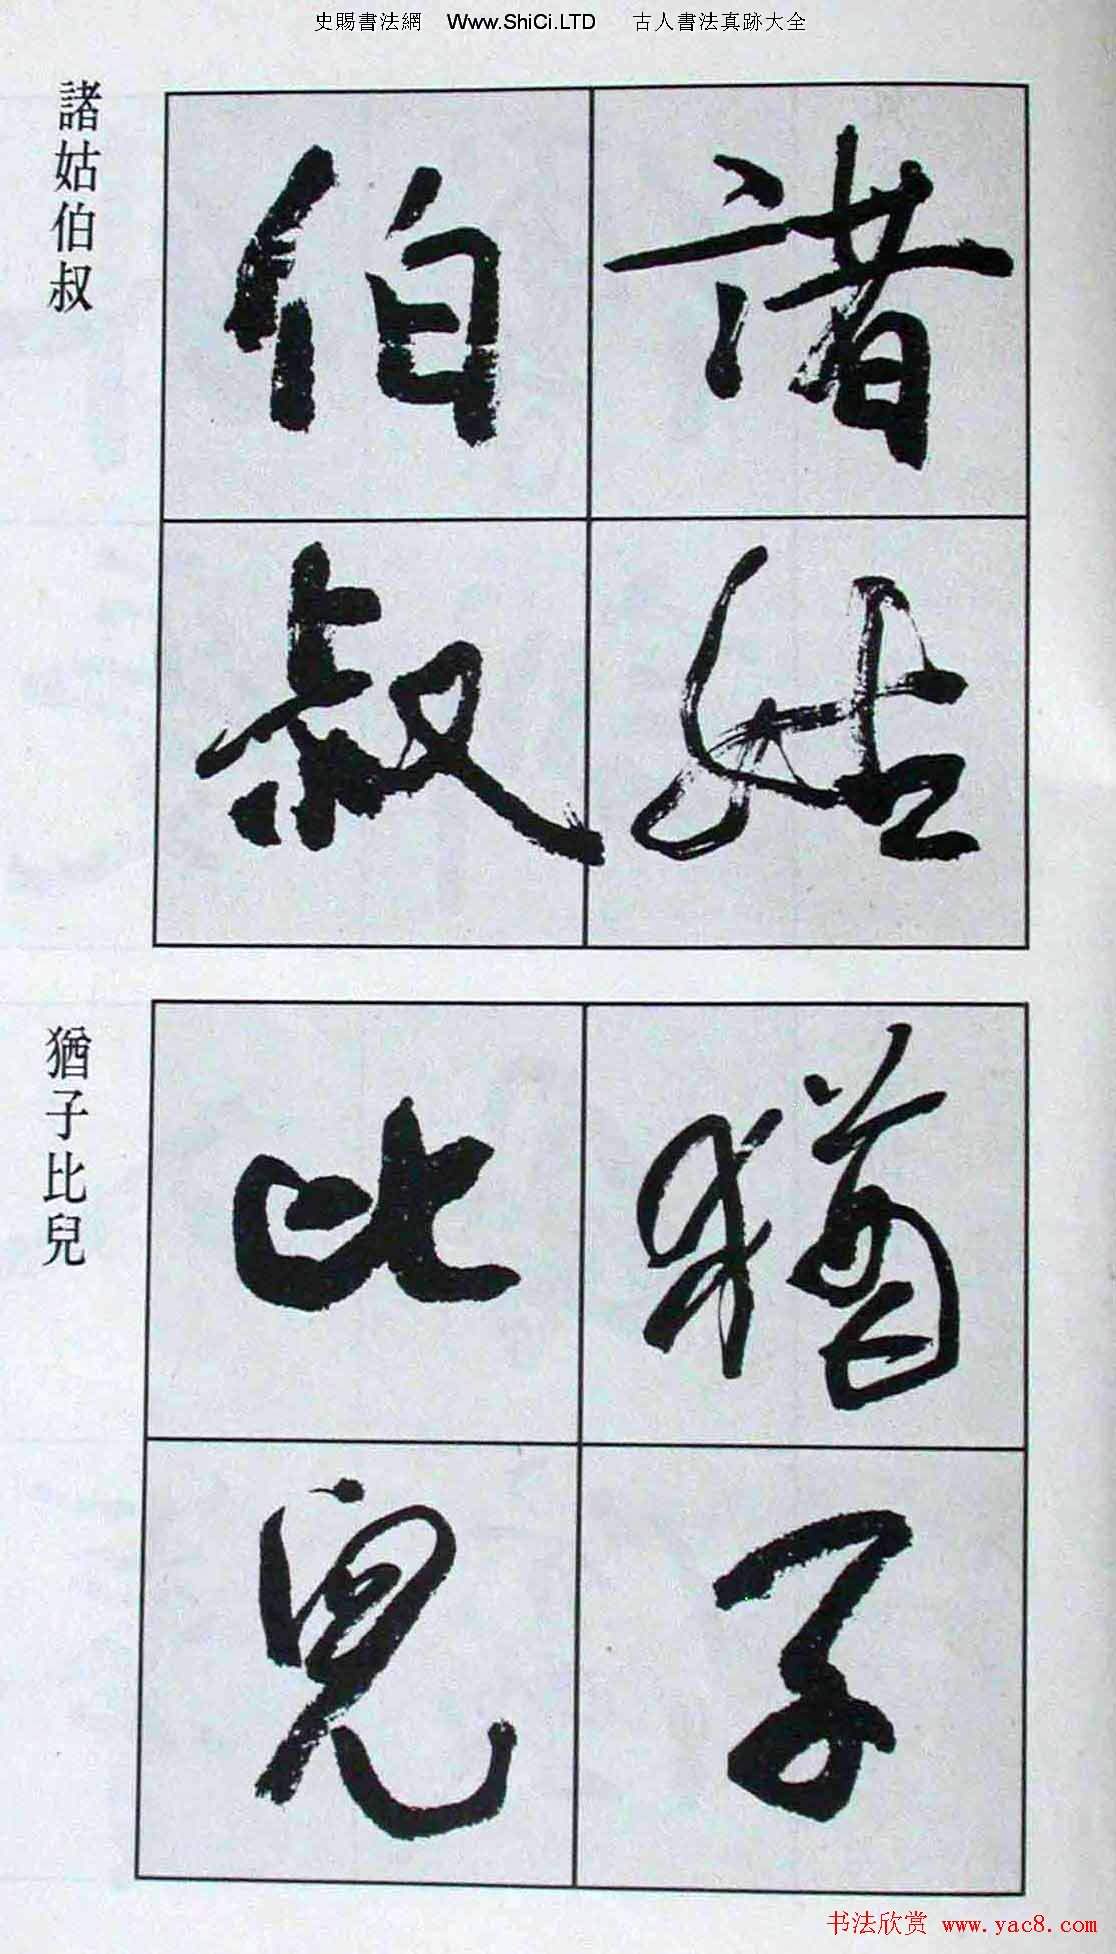 史賜書法網 Www.ShiCi.LTD 古人書法真跡大全
諸姑
伯叔
諸姑伯叔
猶子
比兒
猶子比兒
书法欣赏 www.yac8.com